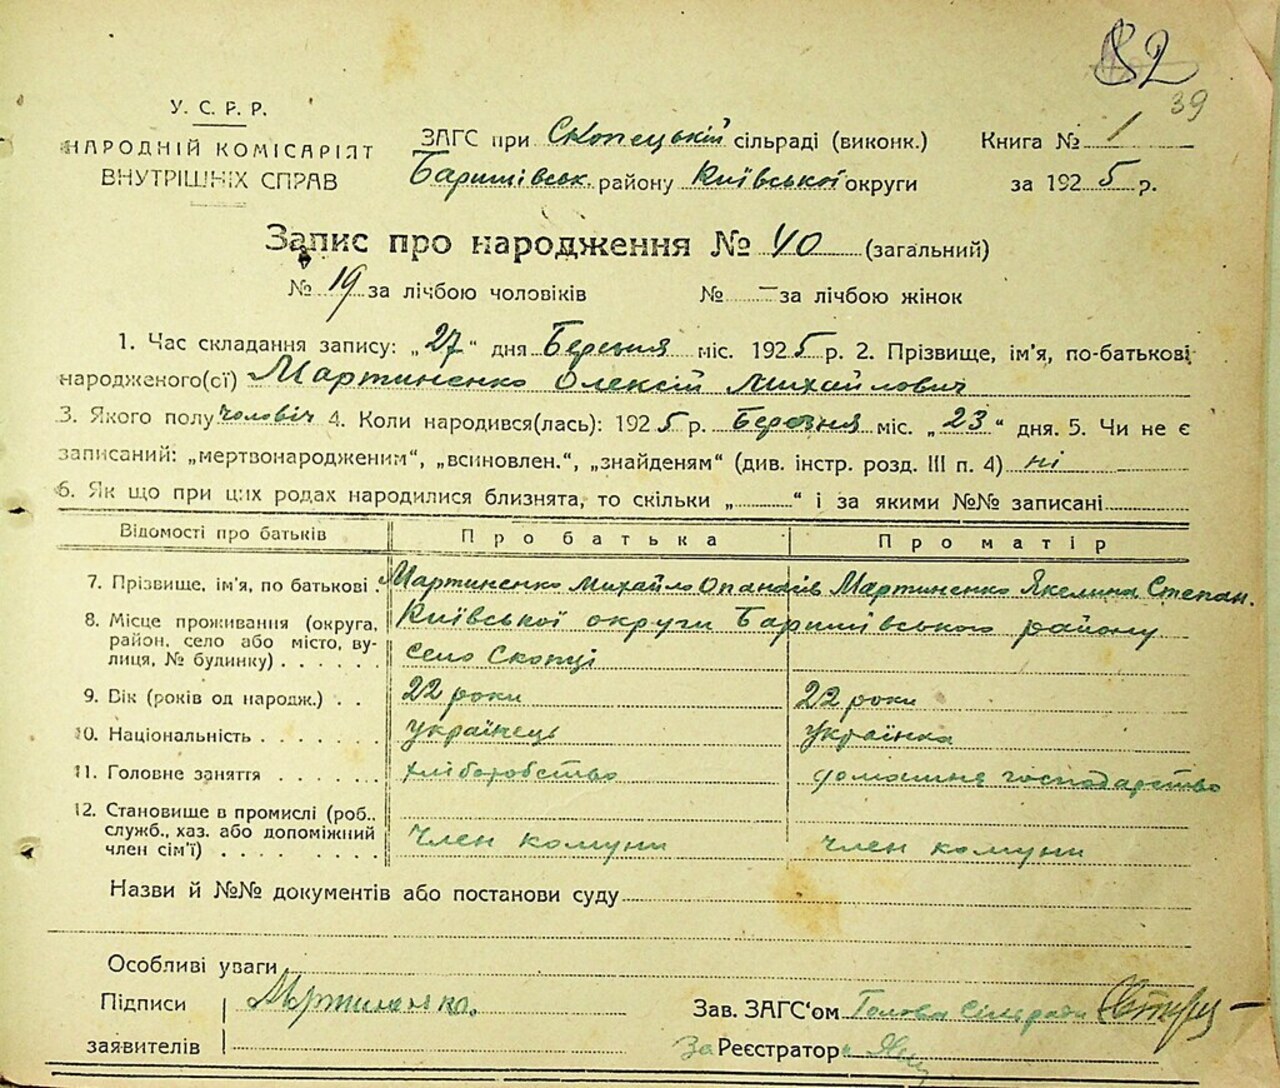 82
39
У. С. Р. Р.
НАРОДНІЙ КОМІСАРІЯТ
ВНУТРІШНІХ СПРАВ
ЗАГС при Скопецькій сільраді (виконк.) Книга № 1
Баришівськ. району Київської округи за 1925 р.
Запис про народження № 40 (загальний)
№ 19 за лічбою чоловіків № – за лічбою жінок
1. Час складання запису: „27“ дня Березня міс. 1925 р. 2. Прізвище, ім'я, по-батькові
народженого(сі) Мартиненко Олексій Михайлович
3. Якого полу чоловіч 4. Коли народився(лась): 1925 р. Березня міс. „23“ дня. 5. Чи не є
записаний: „мертвонародженим“, „всиновлен.“, „знайденям“ (див. інстр. розд. III п. 4) ні
6. Як що при цих родах народилися близнята, то скільки „ “ і за якими №№ записані
Відомості про батьків Про батька Про матір
7. Прізвище, ім'я, по батькові . Мартиненко Михайло Опанасів Мартиненко Якелина Степан.
8. Місце проживання (округа, район, село або місто, вулиця, № будинку) . . . . . . Київської округи Баришівського району
село Скопці
9. Вік (років од народж.) . . 22 роки 22 роки
10. Національність . . . . . . . українець українка
11. Головне заняття . . . . . . хліборобство домашнє господарство
12. Становище в промислі (роб., служб., хаз. або допоміжний член сім'ї) . . . . . . . . член комуни член комуни
Назви й №№ документів або постанови суду
Особливі уваги
Підписи Мартиненко. Зав. ЗАГС'ом Голова Сільради
заявителів За Реєстратора